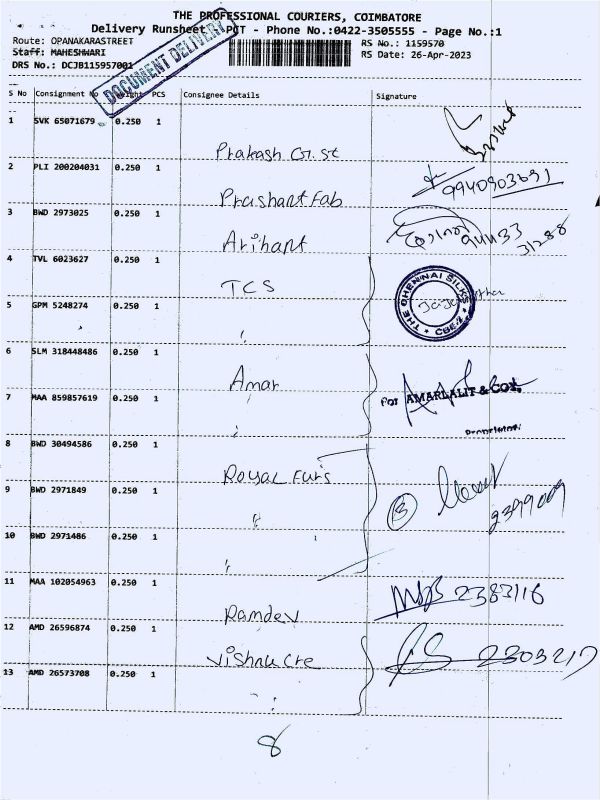 THE PROFESSIONAL COURIERS, COIMBATORE
Delivery Runsheet PCT - Phone No.:0422-3505555 - Page No.:1
Route: OPANAKARASTREET RS No.: 1159570
Staff: MAHESHWARI RS Date: 26-Apr-2023
DRS No.: DCJB115957001
DOCUMENT DELIVERY
S No Consignment No Weight PCS Consignee Details Signature
1 SVK 65071679 0.250 1 Prakash Gr.st
2 PLI 200204031 0.250 1 Prashant Fab 9940903691
3 BWD 2973025 0.250 1 Arihant 94433 31288
4 TVL 6023627 0.250 1 TCS THE CHENNAI SILKS CBE-1
5 GPM 5248274 0.250 1 "
6 SLM 318448486 0.250 1 Amar
7 MAA 859857619 0.250 1 " For AMARLALIT & COY.
Proprietor
8 BWD 30494586 0.250 1 Royal Furs
9 BWD 2971849 0.250 1 " 3 2399009
10 BWD 2971486 0.250 1 "
11 MAA 102054963 0.250 1 Ramdev 2383116
12 AMD 26596874 0.250 1 Vishnu Cre 2303217
13 AMD 26573708 0.250 1 "
8